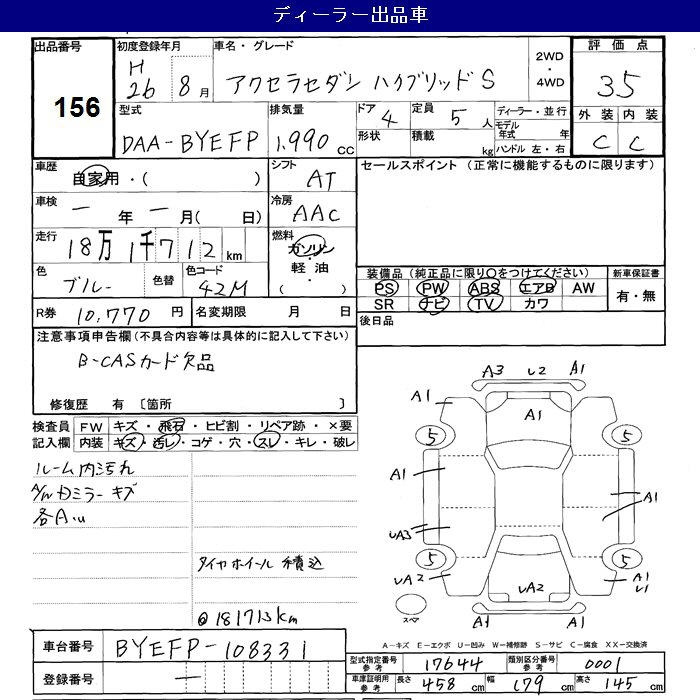 ディーラー出品車
出品番号 156
初度登録年月 H26年 8月
車名・グレード アクセラセダン ハイブリッドS
2WD・4WD
評価点 3.5
外装 C 内装 C
型式 DAA-BYEFP
排気量 1,990 cc
ドア 4 定員 5人
形状 積載 kg
ディーラー・並行
モデル年式 年
ハンドル 左・右
車歴 自家用・( )
シフト AT
セールスポイント (正常に機能するものに限ります)
車検 ー年ー月( 日)
冷房 AAC
走行 18万1千712km
燃料 ガソリン・軽油・( )
色 ブルー 色替 色コード 42M
装備品(純正品に限り○をつけてください)
PS PW ABS エアB AW
SR ナビ TV カワ
新車保証書 有・無
R券 10,770円 名変期限 月 日
後日品
注意事項申告欄(不具合内容等は具体的に記入して下さい)
B-CASカード欠品
修復歴 有 〔箇所 〕
検査員記入欄 FW キズ・飛石・ヒビ割・リペア跡・×要
内装 キズ・汚レ・コゲ・穴・スレ・キレ・破レ
ルーム内汚れ
ミラー キズ
タイヤホイール積込
@181713km
A3 U2 A1
A1 A1 A1
5 5
A1 A1
UA3
5 5
UA2 UA2 A1 U1
A1 A1
スペア
A-キズ E-エクボ U-凹み W-補修跡 S-サビ C-腐食 XX-交換済
車台番号 BYEFP-108331
登録番号 ー
型式指定番号 参考 17644 類別区分番号 参考 0001
車庫証明用 参考 長さ 458cm 幅 179cm 高さ 145cm